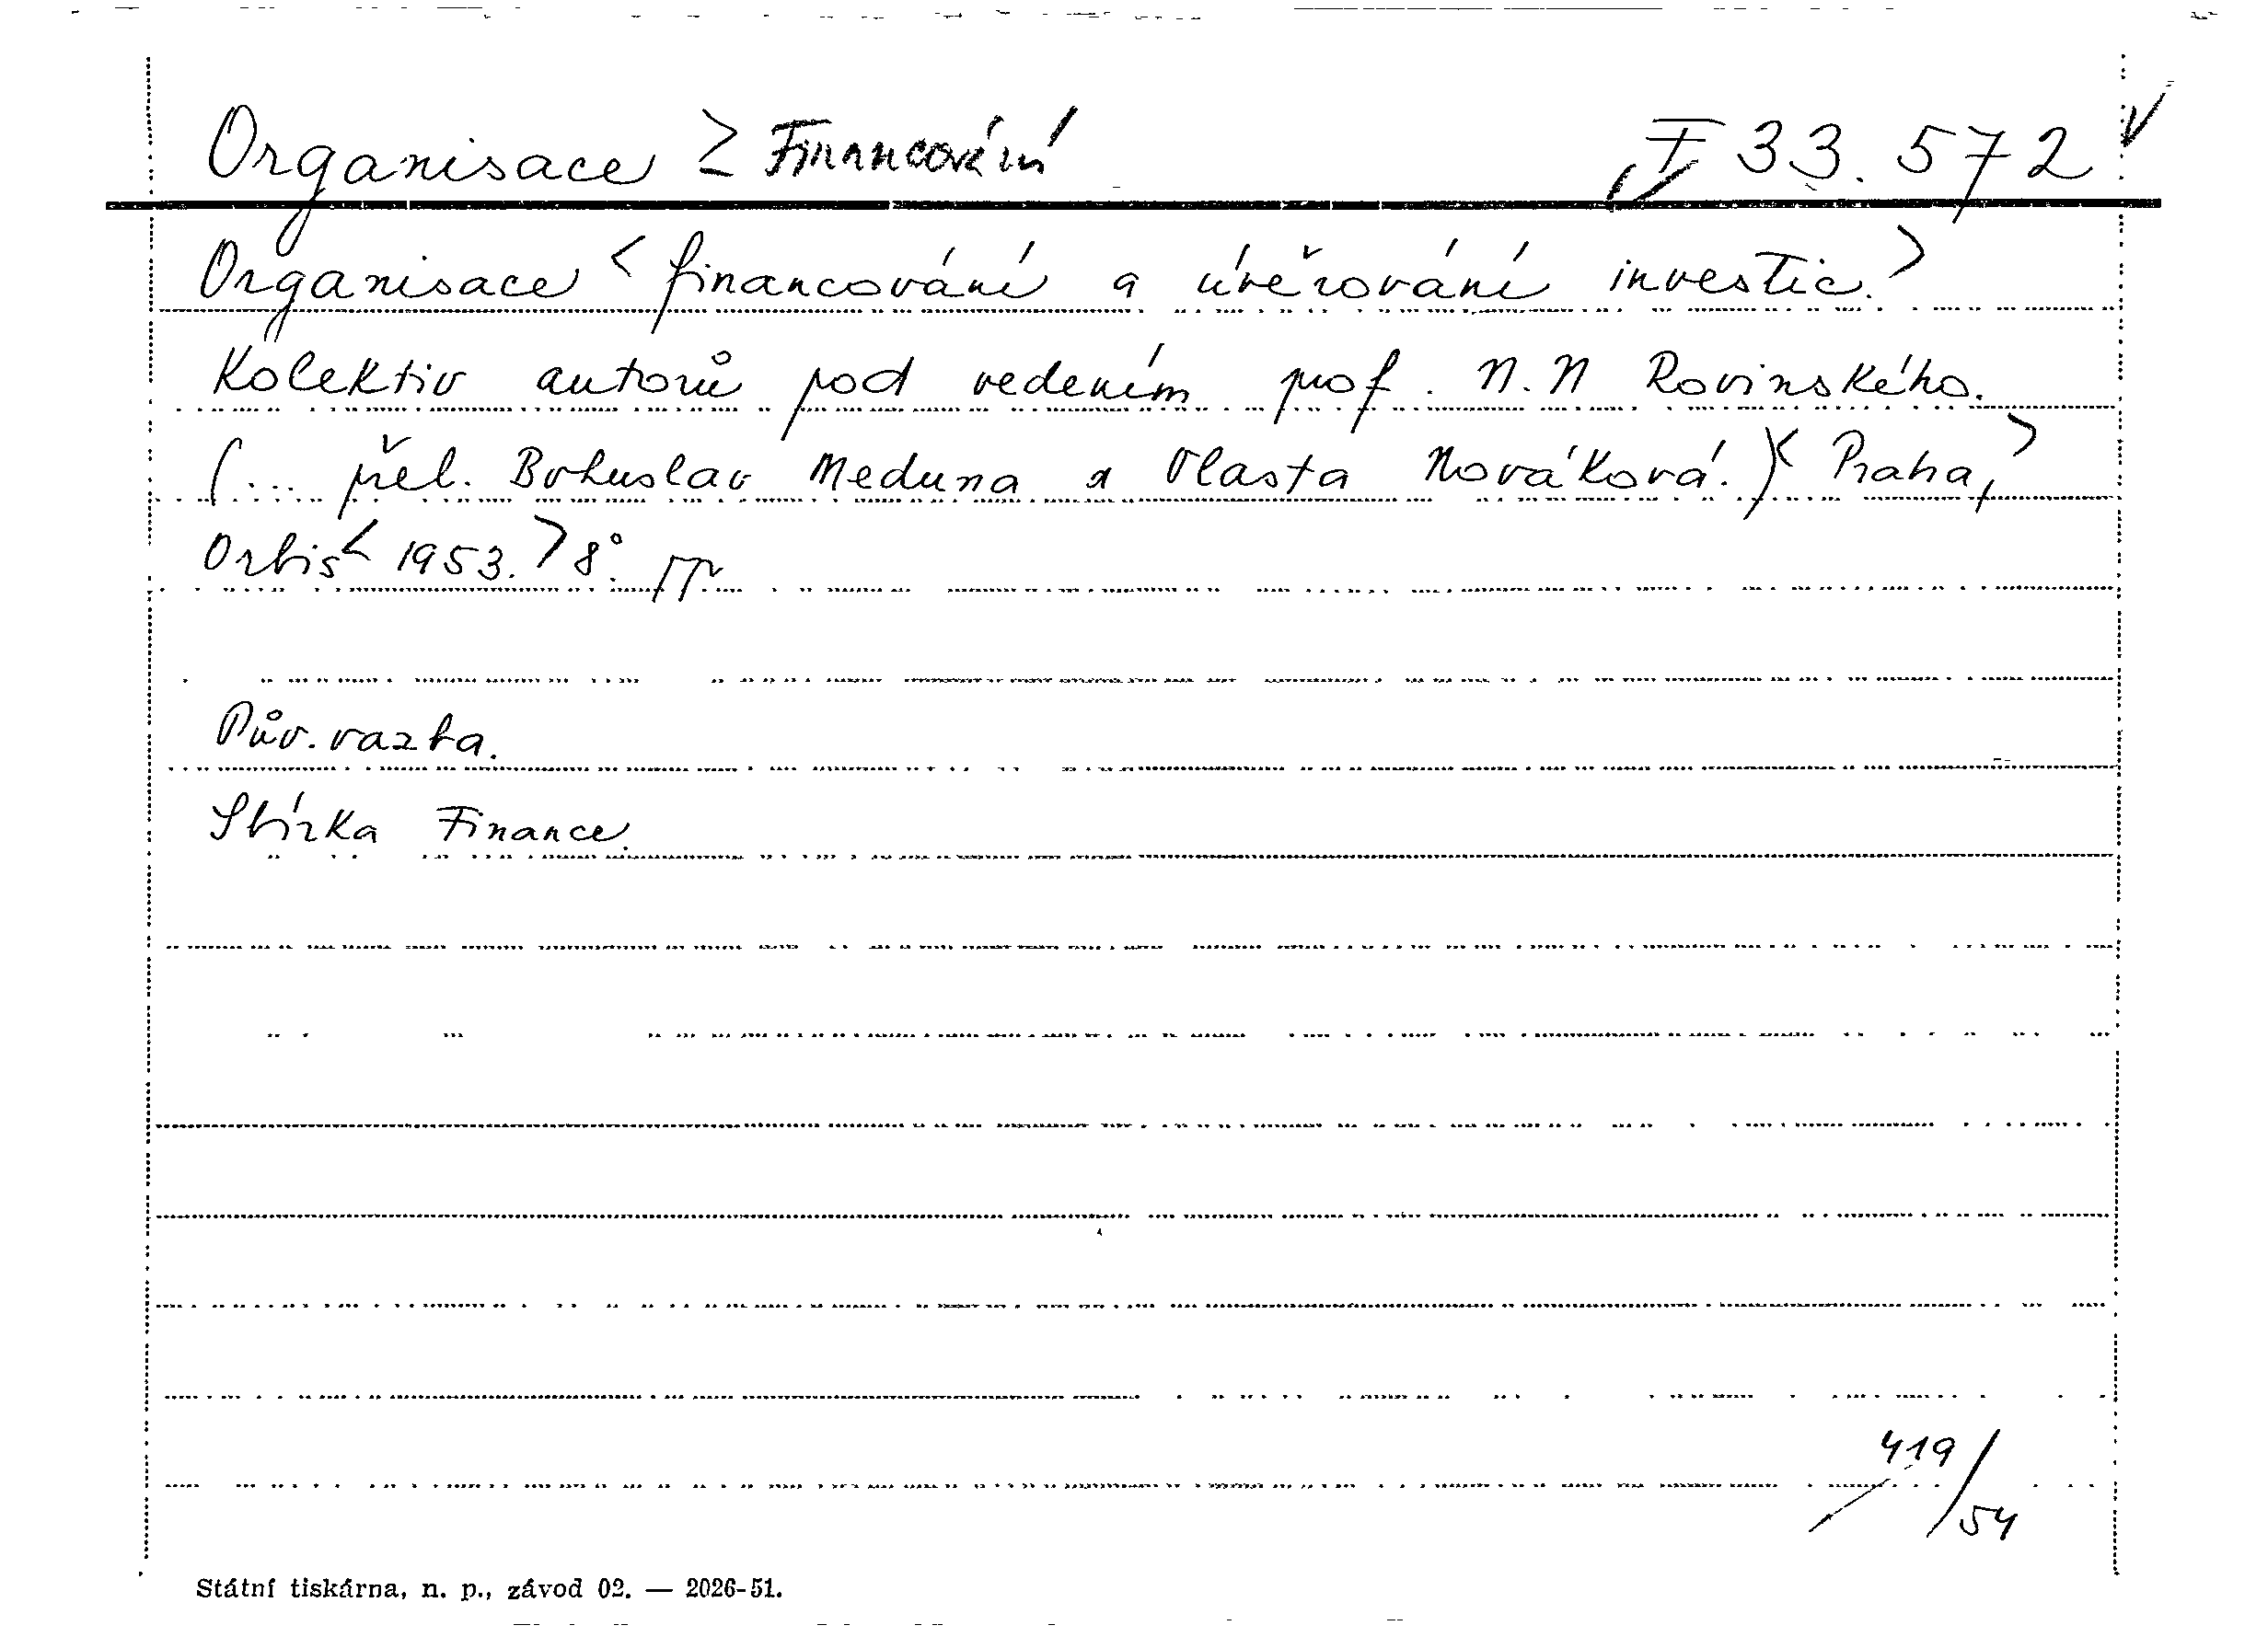 Organisace > Financování I 33.572
Organisace < financování a úvěrování investic. >
Kolektiv autorů pod vedením prof. N.N Rovinského.
(... přel. Bohuslav Meduna a Vlasta Nováková.) < Praha, >
Orbis < 1953. > 8°.
Pův. vazba.
Sbírka Finance.
419/54
Státní tiskárna, n. p., závod 02. — 2026-51.